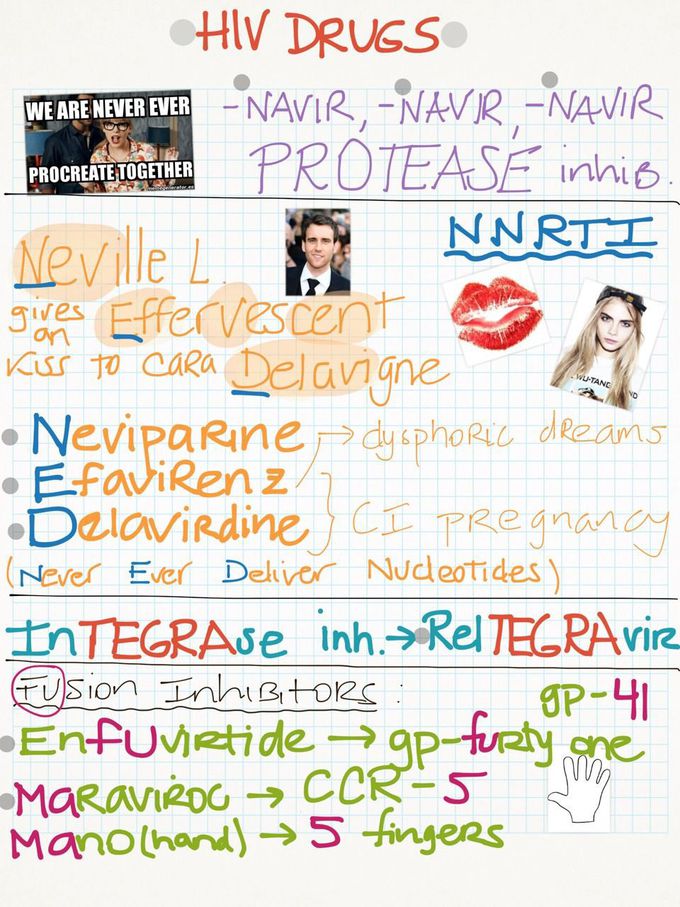 HIV DRUGS
WE ARE NEVER EVER
PROCREATE TOGETHER
memegenerator.es
-NAVIR, -NAVIR, -NAVIR
PROTEASE inhib.
NNRTI
Neville L.
gives an Effervescent
Kiss to CARA Delavigne
WU-TANG
ND
Neviparine → dysphoric dreams
Efavirenz
Delavirdine } CI pregnancy
(Never Ever Deliver Nucleotides)
InTEGRAse inh. → RelTEGRAvir
FUsion InhibitoRs :
gp-41
EnfUviRtide → gp-fuRty one
MaRaviroc → CCR-5
Mano(hand) → 5 fingers